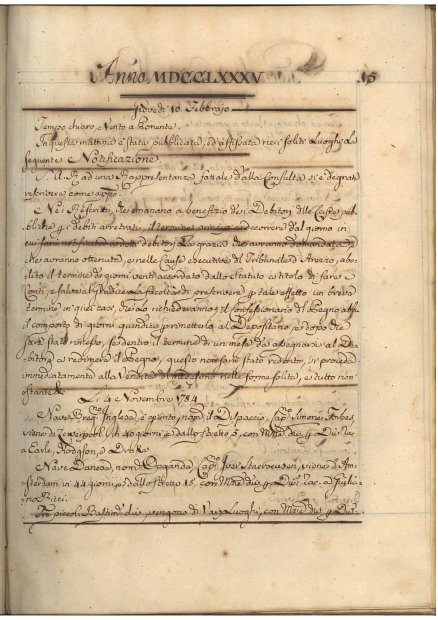 Anno MDCCLXXXV
15
Giovedì 10. Febbrajo
Tempo chiaro, e Vento a Ponente.
In questa mattina è stata pubblicata, ed affissata nei soliti Luoghi la
seguente Notificazione.
S. A. R. ad una Rappresentanza fatale dalla Consulta si è degnata
rescrivere come app.o
Nei Rescritti, che emanano a benefizio dei Debitori dlle Casse pub-
bliche p i debiti arretrati, il termine
decorrere dal giorno in
cui sarà notificato debitori la grazia che avranno domandata, e
che avranno ottenuta, e nelle Cause esecutive del Tribunale di Arezzo, abo-
lito il termine di giorni venti accordato dallo Statuto a titolo di fare i
Conti, e salva al Giudice la facoltà di prescrivere p tale effetto un breve
termine in quei casi, che lo richiederanno; il Confessionario del Pegno abbia
il comporto di giorni quindici a rimetterlo al Depositario, e dopo che
sarà stato rimesso, se dentro il termine di un mese da assegnarsi al De-
bitore a redimere il Pegno, questo non sarà stato redento, si proceda
immediatamente alla Vendita del medesimo nelle forme solite, e tutto non
ostante &c
Li 4 Novembre 1784
Nave Inglese, è giunto, nom. il Dispaccio, Cap.o Simone Forbes,
viene di in 40 giorni, e dallo stretto 5, con Mzie div. p Div. rac.
a Earle, Hodgson, e Drake
Nave Danese, nom. Cap.o viene d'Am-
sterdam in 44 giorni, e dallo stretto 15, con Mzie div. p Div. rac. a Giulia-
no Ricci.
Tre piccoli Bastim.ti div. vengono di Varj Luoghi, con Mzie div. p Div.